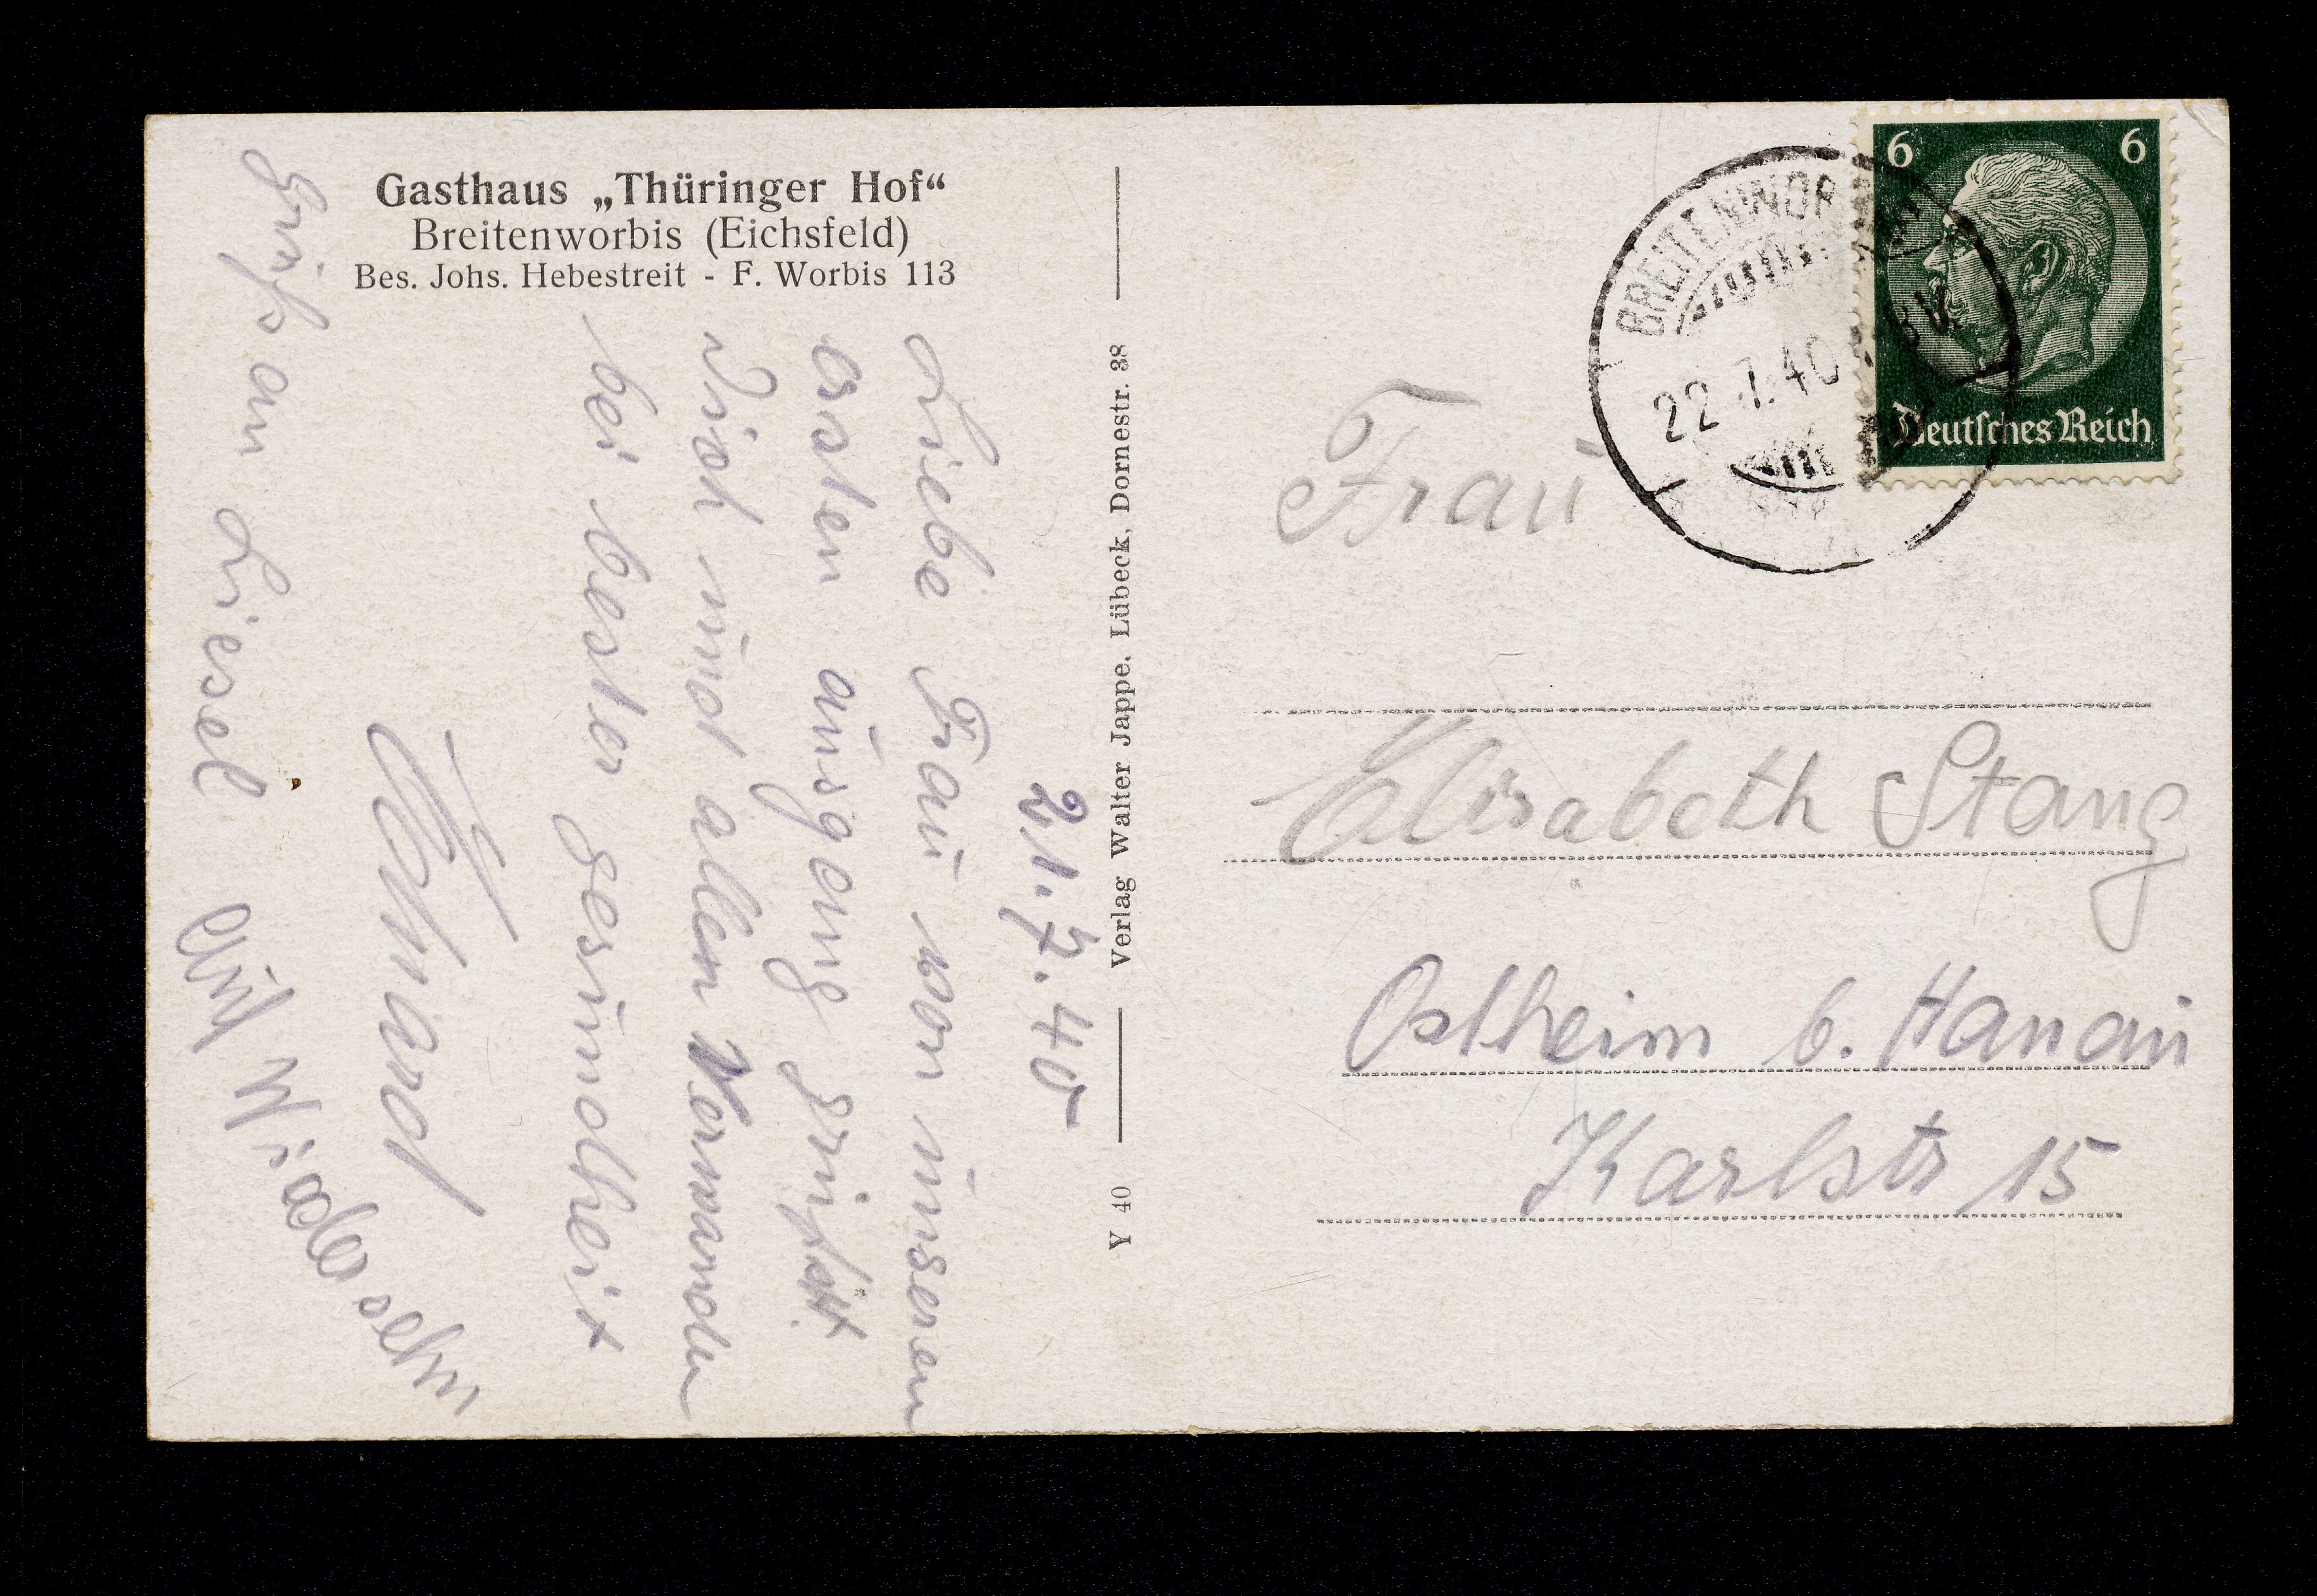 Gasthaus „Thüringer Hof“
Breitenworbis (Eichsfeld)
Bes. Johs. Hebestreit - F. Worbis 113
21.7.40
Liebe Frau von unseren
ersten ausgang grüßt
Dich und allen Verwanden
bei bester gesundheit
Gruß an Liesel
auf Wiedersehn
Verlag Walter Jappe, Lübeck, Dornestr. 38
Y 40
22.7.40
6 6
Deutsches Reich
Frau
Elisabeth Stang
Ostheim b. Hanau
Karlstr 15